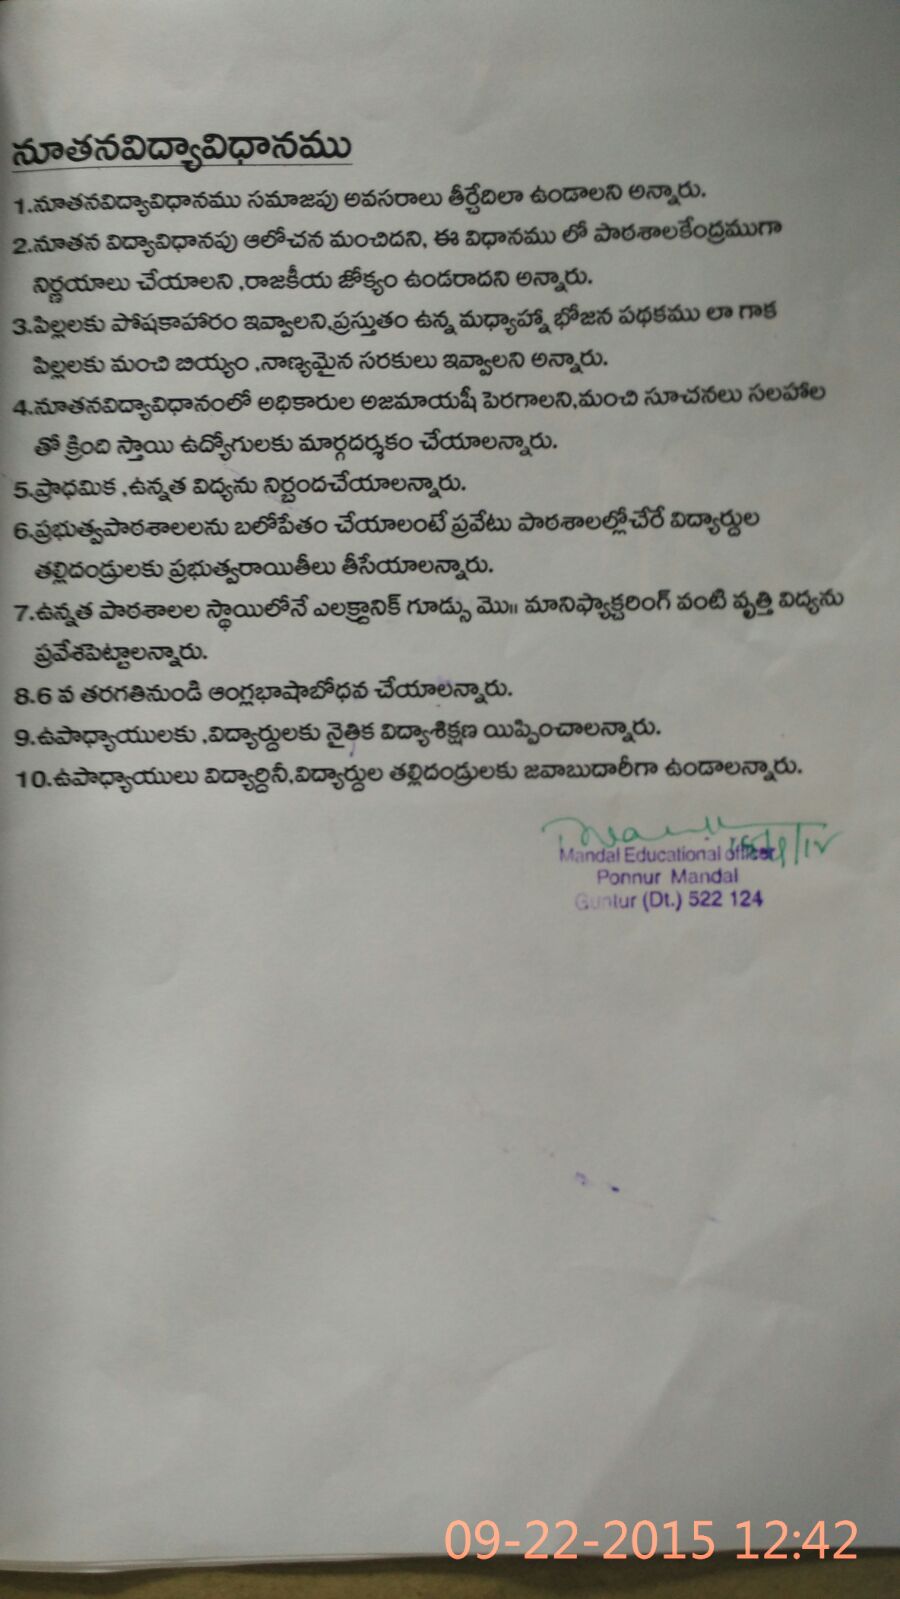 నూతనవిద్యావిధానము
1.నూతనవిద్యావిధానము సమాజపు అవసరాలు తీర్చేదిలా ఉండాలని అన్నారు.
2.నూతన విద్యావిధానపు ఆలోచన మంచిదని, ఈ విధానము లో పాఠశాలకేంద్రముగా
నిర్ణయాలు చేయాలని ,రాజకీయ జోక్యం ఉండరాదని అన్నారు.
3.పిల్లలకు పోషకాహారం ఇవ్వాలని,ప్రస్తుతం ఉన్న మధ్యాహ్నా భోజన పథకము లా గాక
పిల్లలకు మంచి బియ్యం ,నాణ్యమైన సరకులు ఇవ్వాలని అన్నారు.
4.నూతనవిద్యావిధానంలో అధికారుల అజమాయషీ పెరగాలని,మంచి సూచనలు సలహాల
తో క్రింది స్తాయి ఉద్యోగులకు మార్గదర్శకం చేయాలన్నారు.
5.ప్రాధమిక ,ఉన్నత విద్యను నిర్బందచేయాలన్నారు.
6.ప్రభుత్వపాఠశాలలను బలోపేతం చేయాలంటే ప్రవేటు పాఠశాలల్లోచేరే విద్యార్దుల
తల్లిదండ్రులకు ప్రభుత్వరాయితీలు తీసేయాలన్నారు.
7.ఉన్నత పాఠశాలల స్థాయిలోనే ఎలక్ట్రానిక్ గూడ్సు మొ॥ మానిఫ్యాక్చరింగ్ వంటి వృత్తి విద్యను
ప్రవేశపెట్టాలన్నారు.
8.6 వ తరగతినుండి ఆంగ్లభాషాబోధవ చేయాలన్నారు.
9.ఉపాధ్యాయులకు ,విద్యార్దులకు నైతిక విద్యాశిక్షణ యిప్పించాలన్నారు.
10.ఉపాధ్యాయులు విద్యార్దినీ,విద్యార్దుల తల్లిదండ్రులకు జవాబుదారీగా ఉండాలన్నారు.
Mandal Educational officer
Ponnur Mandal
Guntur (Dt.) 522 124
09-22-2015 12:42